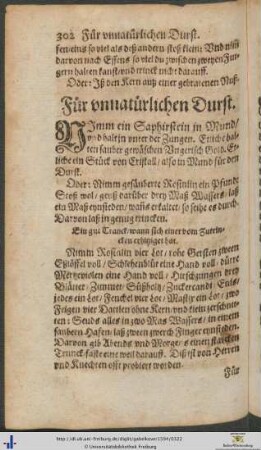 302 Für vnnatürlichen Durst.
ten eins so viel als deß andern/ stoß klein/ Vnd niß
darvon nach Essens so viel du zwischen zweyen Fin-
gern halten kanst/ vnd trinck nicht darauff.
Oder: Iß den Kern auß einer gebratenen Nuß.
Für vnnatürlichen Durst.
NImm ein Saphirstein in Mund/
vnd halt jn vnter der Zungen. Etliche hal-
ten sauber gewäschen Vngerisch Gold. Et-
liche ein Stück von Cristall/ also im Mund für den
Durst.
Oder: Nimm gesäuberte Rosinlin ein Pfund/
Stoß wol/ geuß darüber drey Maß Wassers/ laß
ein Maß eynsieden/ wañs erkaltet/ so seihe es durch/
Darvon laß jn genug trincken.
Ein gut Tranck/ wann sich einer vom Zutrin-
cken erhitziget hat.
Nimm Rosinlin vier Lot/ rohe Gersten zween
Eßlöffel voll/ Schlehenblüt eine Hand voll/ dürre
Mertzviolen eine Hand voll/ Hirschzungen drey
Blätter/ Zimmet/ Süßholtz/ Zuckercandit/ Eniß/
jedes ein Lot/ Fenchel vier Lot/ Mastix ein Lot/ zwo
Feigen/ vier Datteln ohne Kern vnd klein zerschnit-
ten: Seuds alles in zwo Maß Wassers/ in einem
saubern Hafen/ laß zween zwerch Finger eynsieden.
Darvon gib Abends vnd Morgens einen starcken
Trunck/ faste eine weil darauff. Diß ist von Herren
vnd Knechten offt probiert worden.
Für
http://dl.ub.uni-freiburg.de/diglit/gabelkover1594/0322
© Universitätsbibliothek Freiburg